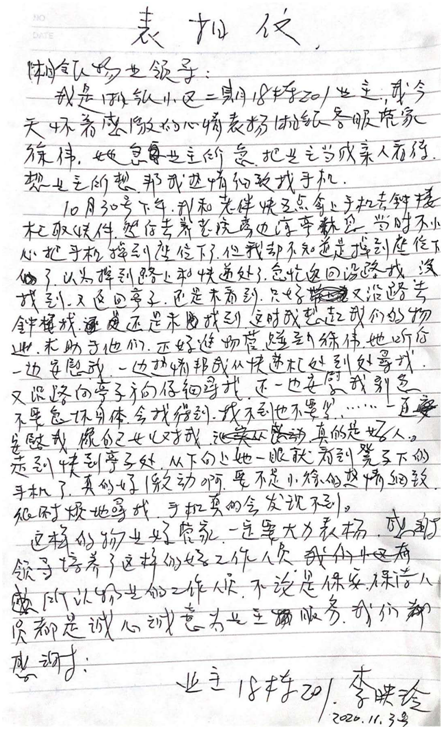 表扬信
领导:
我是小区二期18栋201业主,我今
天怀着感激的心情表扬客服管家
徐伟,她急业主所急,把业主当成亲人看待,
想业主所想,帮我热情细致找手机.
10月30号下午,我和老伴快五点拿上手机去钟楼
柜取快件,然后去亭,当时不小
心把手机掉到座位下了,但我却不知道是掉到座位下
了,以为掉到路上和快递处了,急忙返回沿路找,没
找到,又返回亭子,还是未看到,只好又沿路去
钟楼找,还是未找到,这时我想起我们的物
业,求助于他们,正好徐伟,她听后
一边安慰我,一边热情帮我从快递柜处到处寻找,
又沿路向亭子方向仔细寻找,还一边安慰我别急
不要急坏身体,会找得到,找不到也不要……一直
安慰我,像自己女儿对我,真的是好人。
走到快到亭子处,从下向上她一眼就看到凳子下的
手机了,真的好激动啊,要不是小徐的热情细致,
不耐烦地寻找,手机真的会发现不到。
这样的物业好管家,一定要大力表扬,感谢
领导培养了这样的好工作人员
所以物业的工作人员,不论是保安、保洁人
员都是诚心诚意为业主服务,我们
感谢!
业主 18栋201,李映玲
2020.11.3号